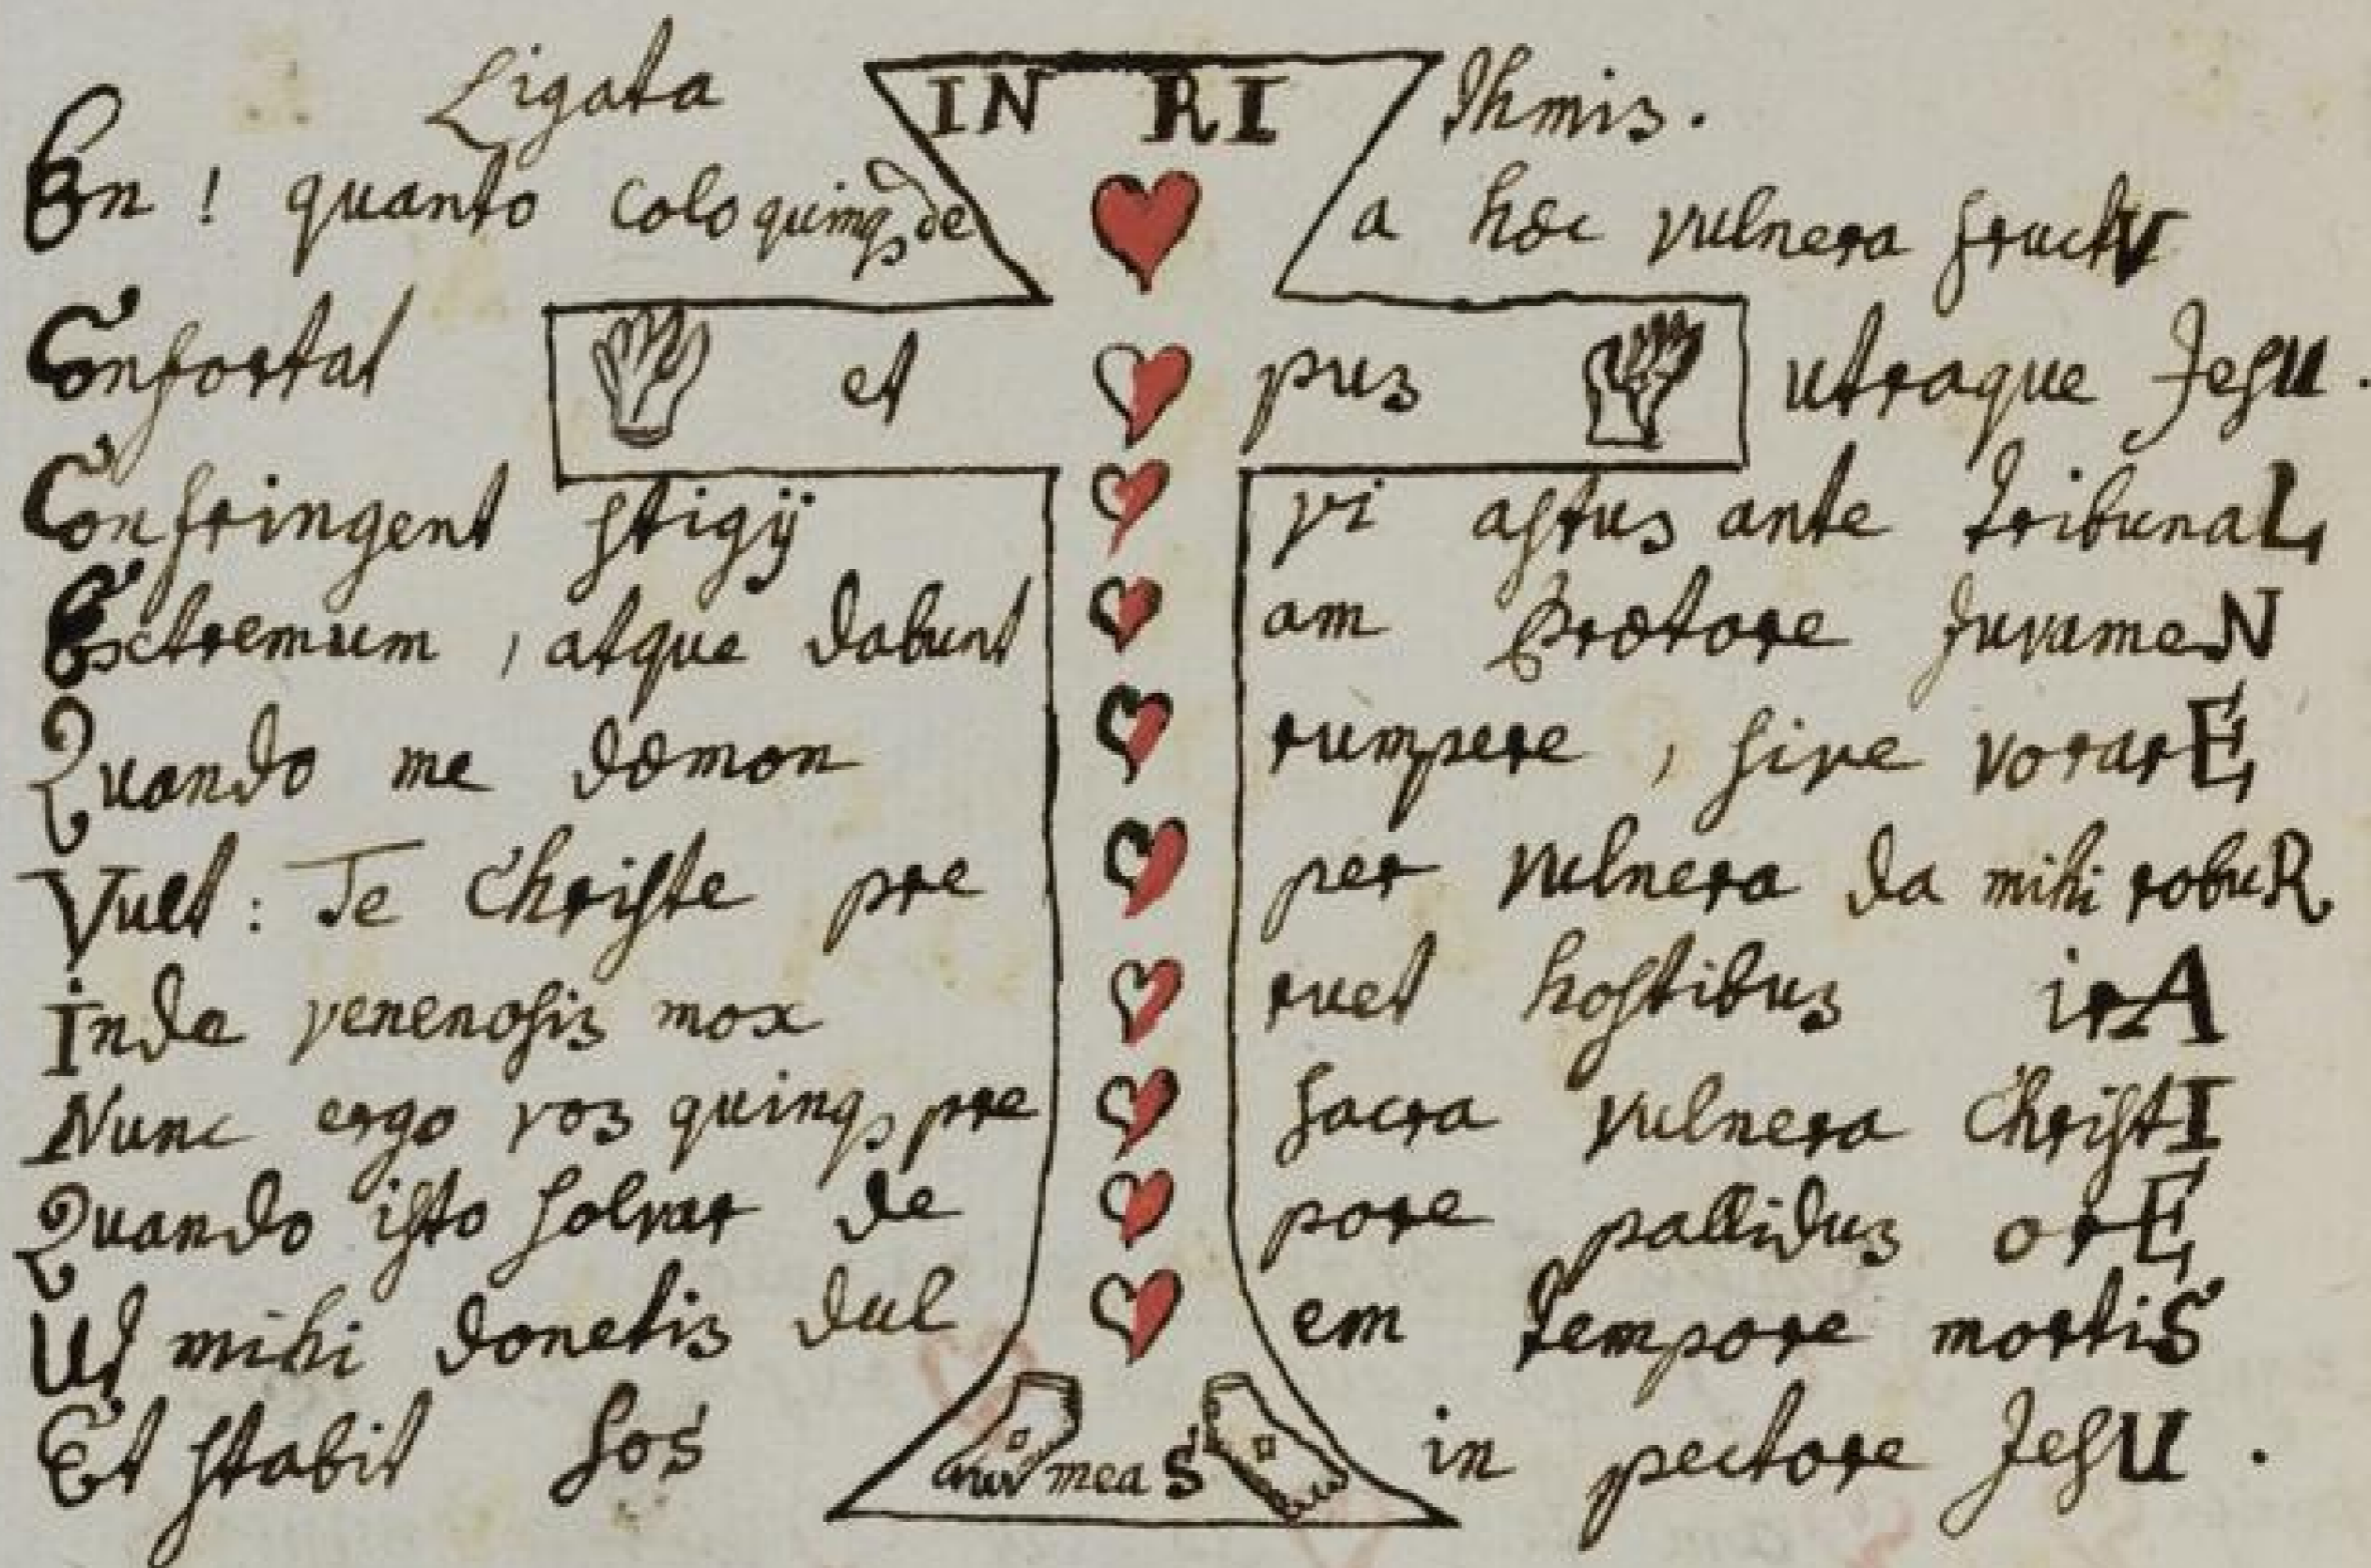 Ligata IN RI Thmis.
En ! quanto colo quinq de a hæc vulnera fructV
Confortat et pus utraque JesU.
Confringent stigÿ vi astus ante tribunaL
Extremum, atque dabunt am Prætore JuvameN
Quando me dæmon rumpere, sive vorarE
Vult: Te Christe pre per vulnera da mihi robuR
Inde venenosis mox ruet hostibus irA
Nunc ergo vos quinq, pre sacra vulnera ChristI
Quando isto solvar de pore pallidus orE
Ut mihi donetis dul em tempore mortiS
Et stabit sos meaS in pectore JesU.